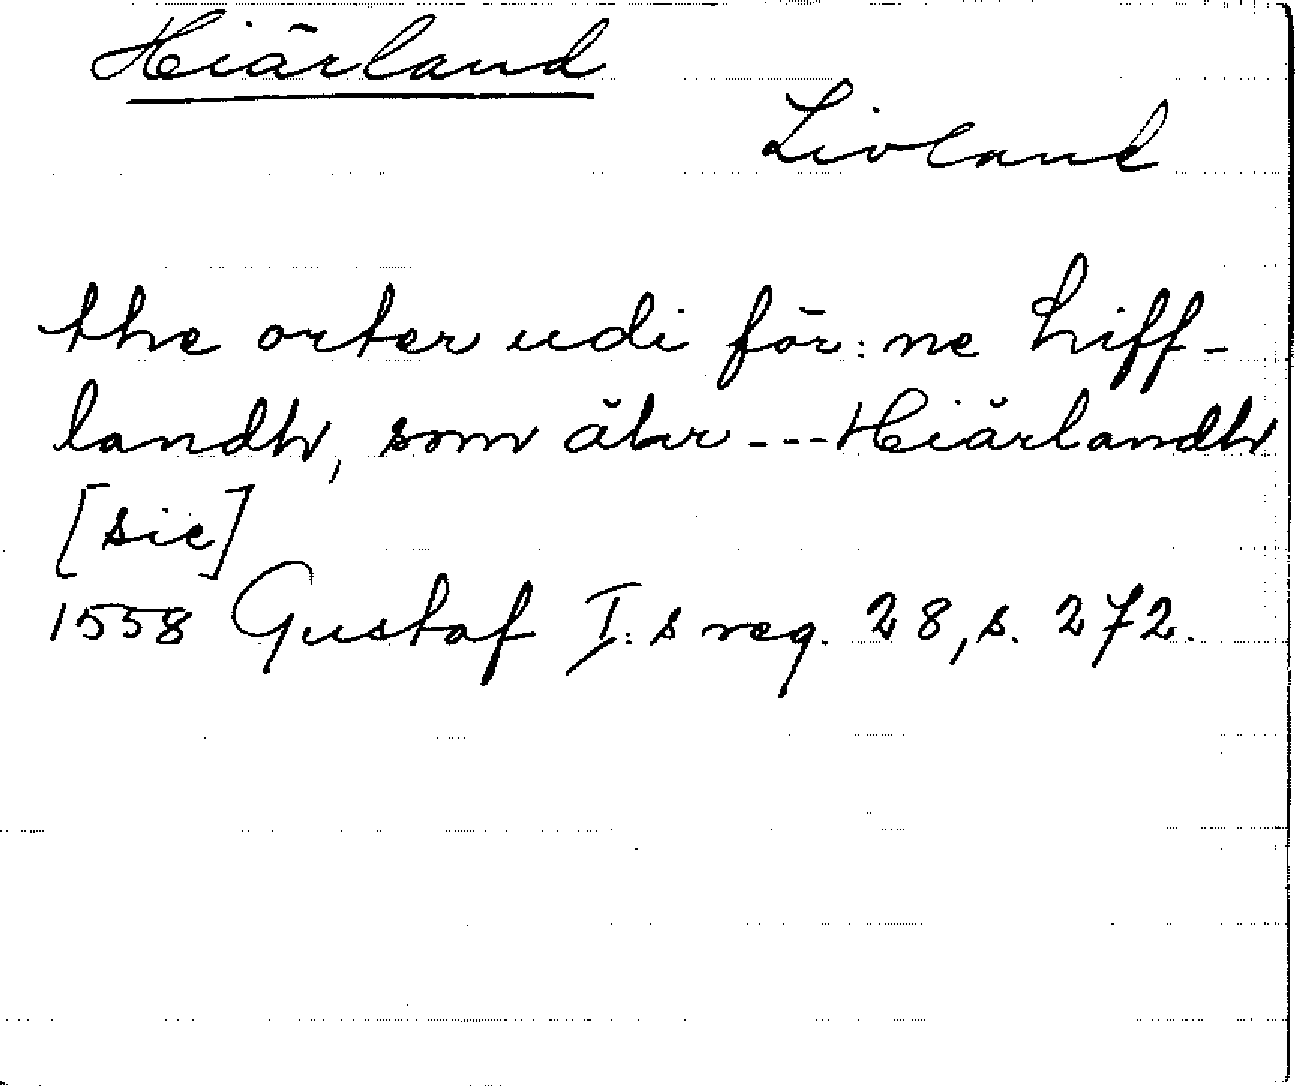 Hiärland
Livland
the orter udi för:ne Liff-
landh, som ähr --- Hiärlandh
[sic]
1558 Gustaf I:s reg. 28, s. 272.